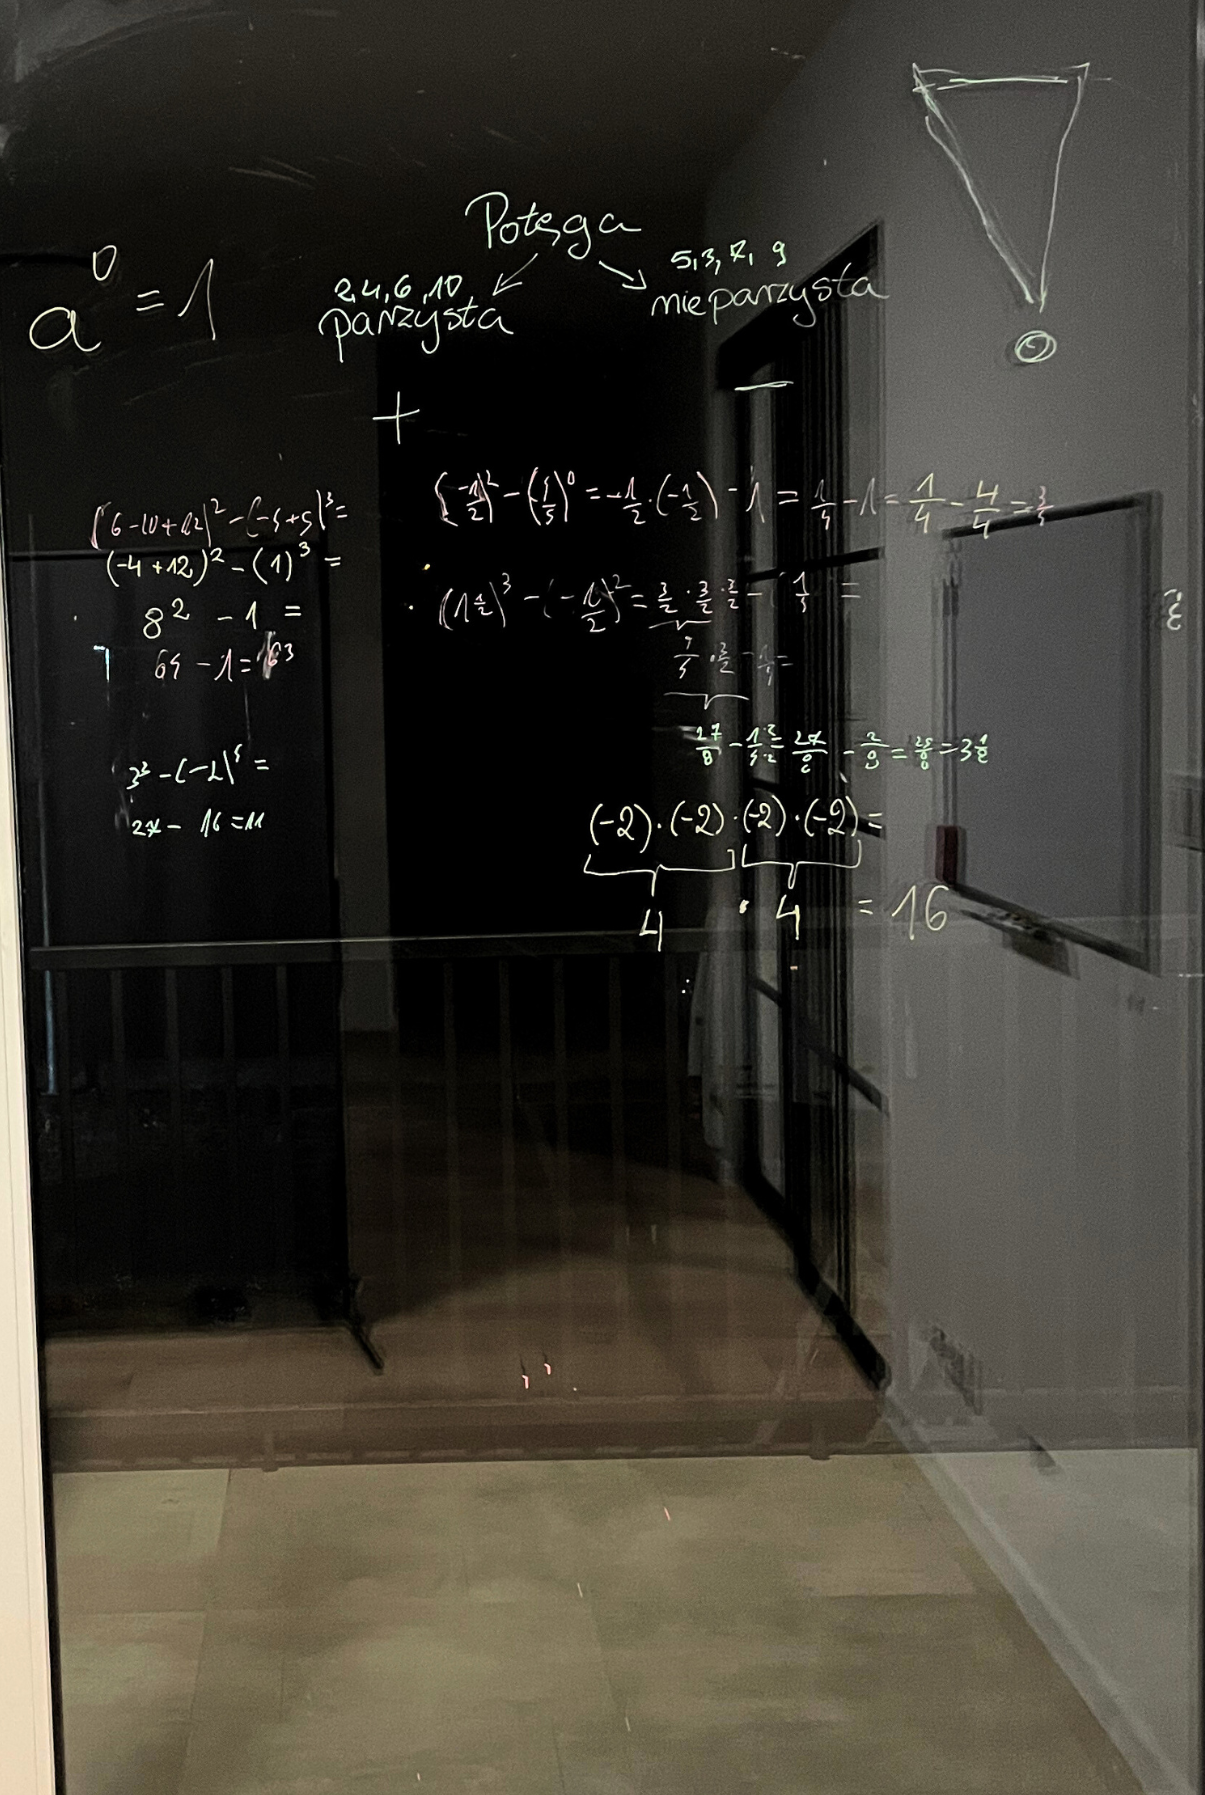 Potęga
2,4,6,10 5,3,7,9
a⁰ = 1 parzysta nieparzysta
+ −
(6-10+12)² - (-4+5)³=
(-4+12)² - (1)³ =
8² - 1 =
64 - 1 = 63
3³ - (-2)⁴ =
27 - 16 = 11
(-1/2)² - (4/5)⁰ = -1/2 · (-1/2) - 1 = 1/4 - 1 = 1/4 - 4/4 = 3/4
(1 1/2)³ - (-1/2)² = 3/2 · 3/2 · 3/2 - 1/4 =
9/4 · 3/2 - 1/4 =
27/8 - 1·2/4·2 = 27/8 - 2/8 = 25/8 = 3 1/8
(-2)·(-2)·(-2)·(-2)=
4 · 4 = 16